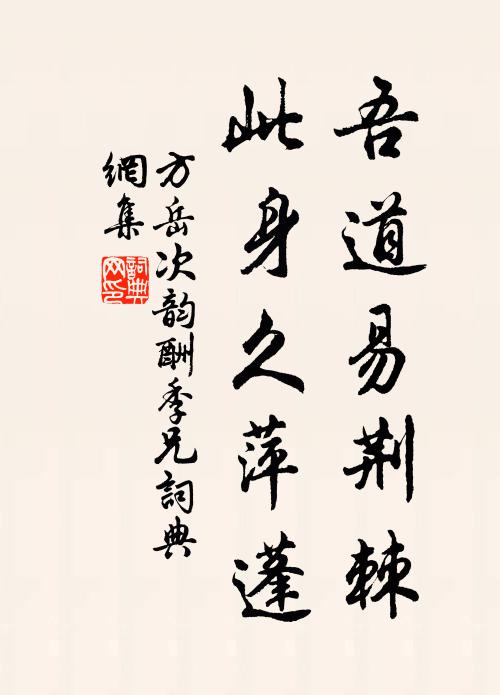 吾道易荆棘
此身久萍蓬
方岳次韵酬季兄詞典
網集
詞典網印